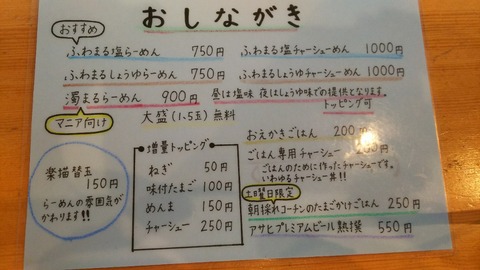 おしながき
おすすめ
ふわまる塩らーめん 750円
ふわまるしょうゆらーめん 750円
濁まるらーめん 900円
マニア向け
大盛(1、5玉)無料
ふわまる塩チャーシューめん 1000円
ふわまるしょうゆチャーシューめん 1000円
昼は塩味 夜はしょうゆ味での提供となります。
トッピング可
楽猫替玉
150円
らーめんの雰囲気が
かわります!!
増量トッピング
ねぎ 50円
味付たまご 100円
めんま 150円
チャーシュー 250円
おえかきごはん 200円
ごはん専用チャーシュー 円
ごはんのために作ったチャーシューです。
いわゆるチャーシュー丼!!
土曜日限定
朝採れコーチンのたまごかけごはん 250円
アサヒプレミアムビール熟撰 550円